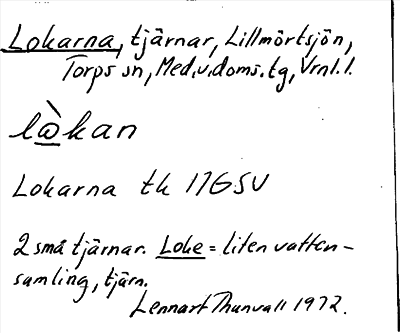 Lokarna, tjärnar, Lillmörtsjön,
Torps sn, Med.v.doms.tg, Vrnl. l.
là̲kan
Lokarna tk 17G SV
2 små tjärnar. Loke = liten vatten-
samling, tjärn.
Lennart Thunvall 1972.